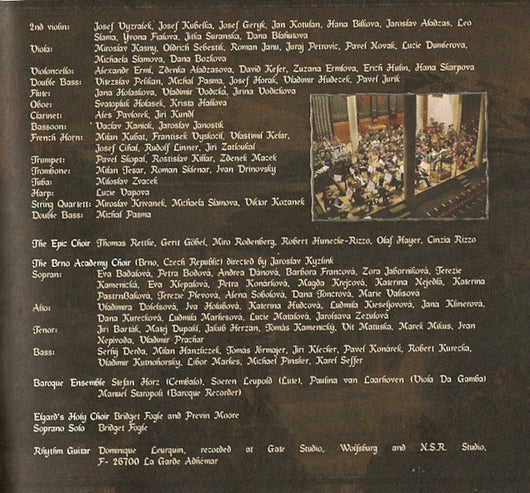 2nd violin: Josef Vyzrálek, Josef Kubelka, Josef Geryk, Jan Kotulan, Hana Bílková, Jaroslav Aladzas, Leo
Sláma, Yvona Fialová, Jitka Suranska, Dana Blahutova
Viola: Miroslav Kasny, Oldrich Sebestik, Roman Janu, Juraj Petrovic, Pavel Novak, Lucie Dumlerova,
Michaela Slamova, Dana Bozkova
Violoncello: Alexandr Erml, Zdenka Aladzasova, David Kefer, Zuzana Ermlova, Erich Hulin, Hana Skarpova
Double Bass: Vitezslav Pelikan, Michal Pasma, Josef Horak, Vladimir Hudecek, Pavel Jurik
Flute: Jana Holaskova, Vladimir Vodicka, Jirina Vodickova
Oboe: Svatopluk Holasek, Krista Hallova
Clarinet: Ales Pavlorek, Jiri Kundl
Bassoon: Vaclav Kaniok, Jaroslav Janostik
French Horn: Milan Kubat, Frantisek Vyskocil, Vlastimil Kelar,
Josef Cihal, Rudolf Linner, Jiri Zatloukal
Trumpet: Pavel Skopal, Rostislav Killar, Zdenek Macek
Trombone: Milan Tesar, Roman Sklenar, Ivan Drinovsky
Tuba: Miloslav Zvacek
Harp: Lucie Vapova
String Quartett: Miroslav Krivanek, Michaela Slamova, Viktor Kozanek
Double Bass: Michal Pasma
The Epic Choir Thomas Rettke, Gerit Göbel, Miro Rodenberg, Robert Hunecke-Rizzo, Olaf Hayer, Cinzia Rizzo
The Brno Academy Choir (Brno, Czech Republic) directed by Jaroslav Kyzlink
Sopran: Eva Badalová, Petra Bodová, Andrea Dánová, Barbora Francová, Zora Jaborníková, Terezie
Kamenická, Eva Klepalová, Petra Konárková, Magda Krejcová, Katerina Nejedlá, Katerina
Pastrnbaková, Terezie Plevová, Alena Sobolová, Dana Toncrová, Marie Vališová
Alto: Vladimira Dolelsová, Iva Holubová, Katerina Hudcová, Ludmila Kieseljovová, Jana Klimerova,
Dana Kurecková, Ludmila Markesová, Lucie Mataiová, Jaroslava Zezulová
Tenor: Jirí Barták, Matej Dupal, Jakub Herzan, Tomás Kamenický, Vít Matuska, Marek Mikus, Ivan
Nepivoda, Vladimír Prachar
Bass: Serhij Derda, Milan Hanzliczek, Tomás Jörmajer, Jirí Klecker, Pavel Konárek, Robert Kurecka,
Vladimír Kutnohorský, Libor Markes, Michael Pinsker, Karel Seffer
Baroque Ensemble Stefan Horz (Cembalo), Soeren Leupold (Lute), Paulina van Laarhoven (Viola Da Gamba)
Manuel Staropoli (Baroque Recorder)
Elgard's Holy Choir Bridget Fogle and Previn Moore
Soprano Solo Bridget Fogle
Rhythm Guitar Dominique Leurquin, recorded at Gate Studio, Wolfsburg and N.S.R. Studio,
F- 26700 La Garde Adhémar